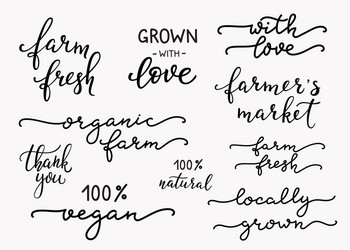 farm
fresh
GROWN
- WITH -
love
with
love
farmer's
market
organic
farm
thank
you
100%
natural
farm
fresh
100%
vegan
locally
grown